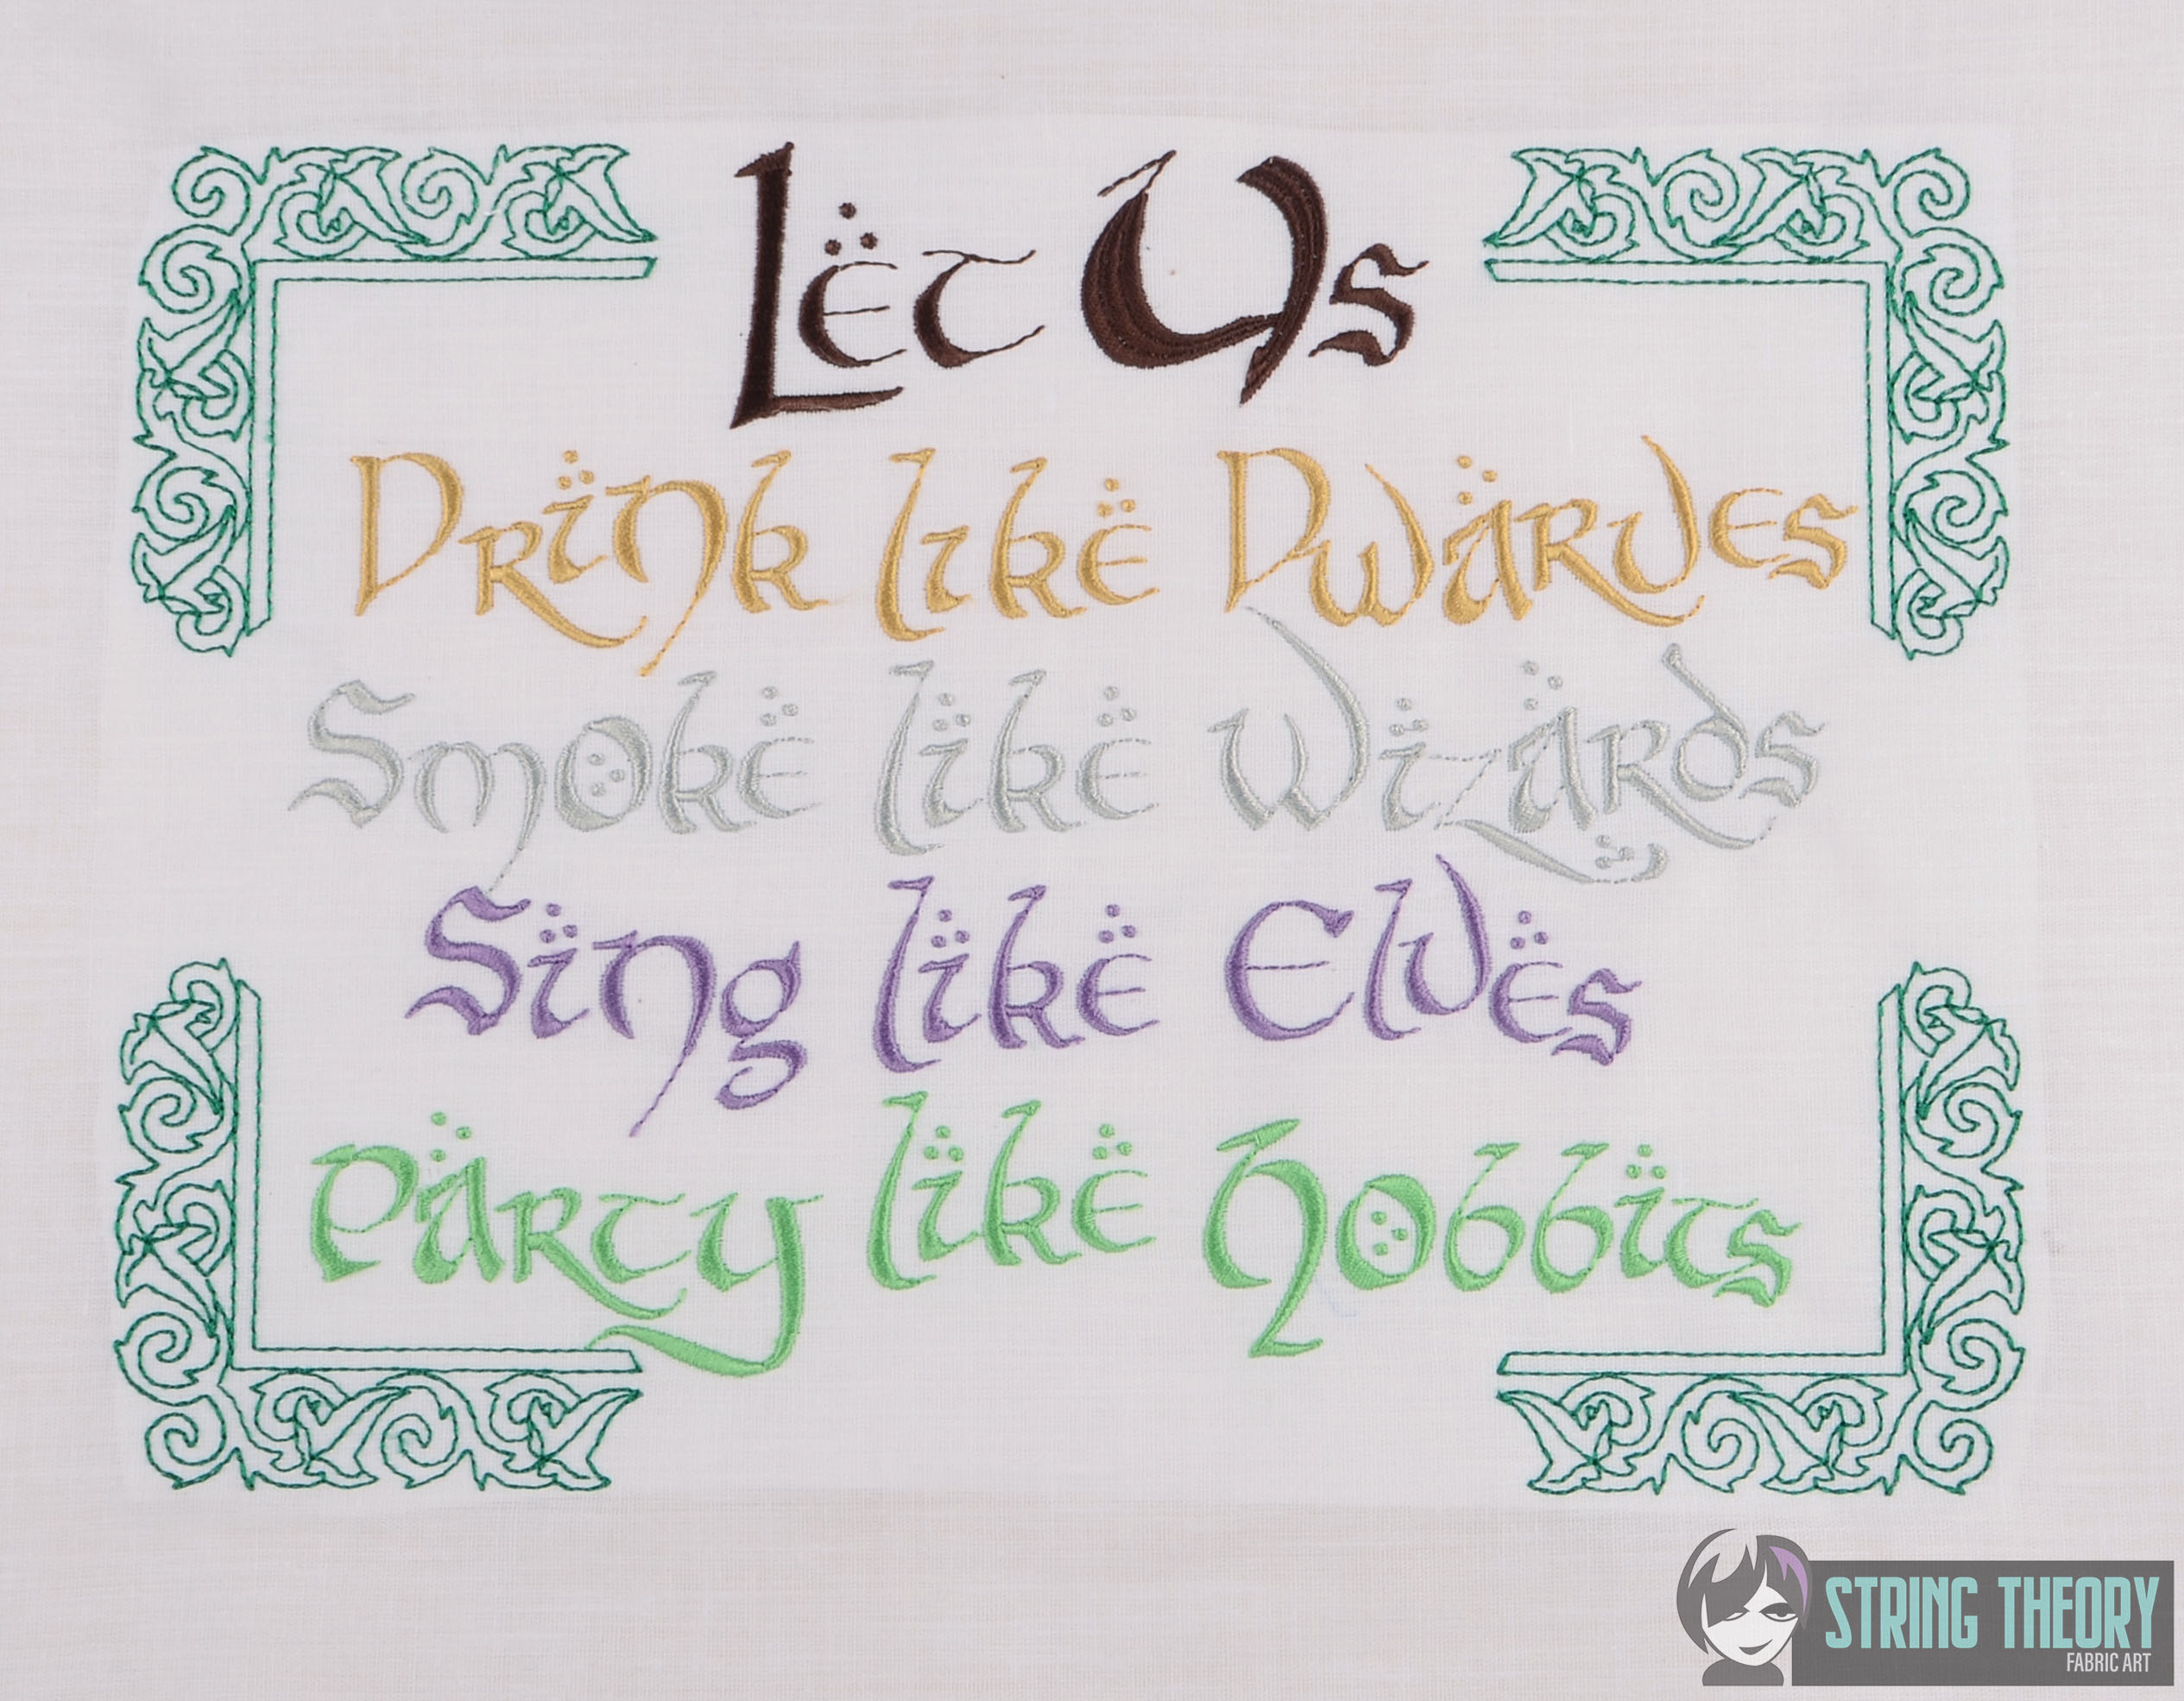 Let Us
Drink like Dwarves
Smoke like Wizards
Sing like Elves
Party like Hobbits
STRING THEORY
FABRIC ART